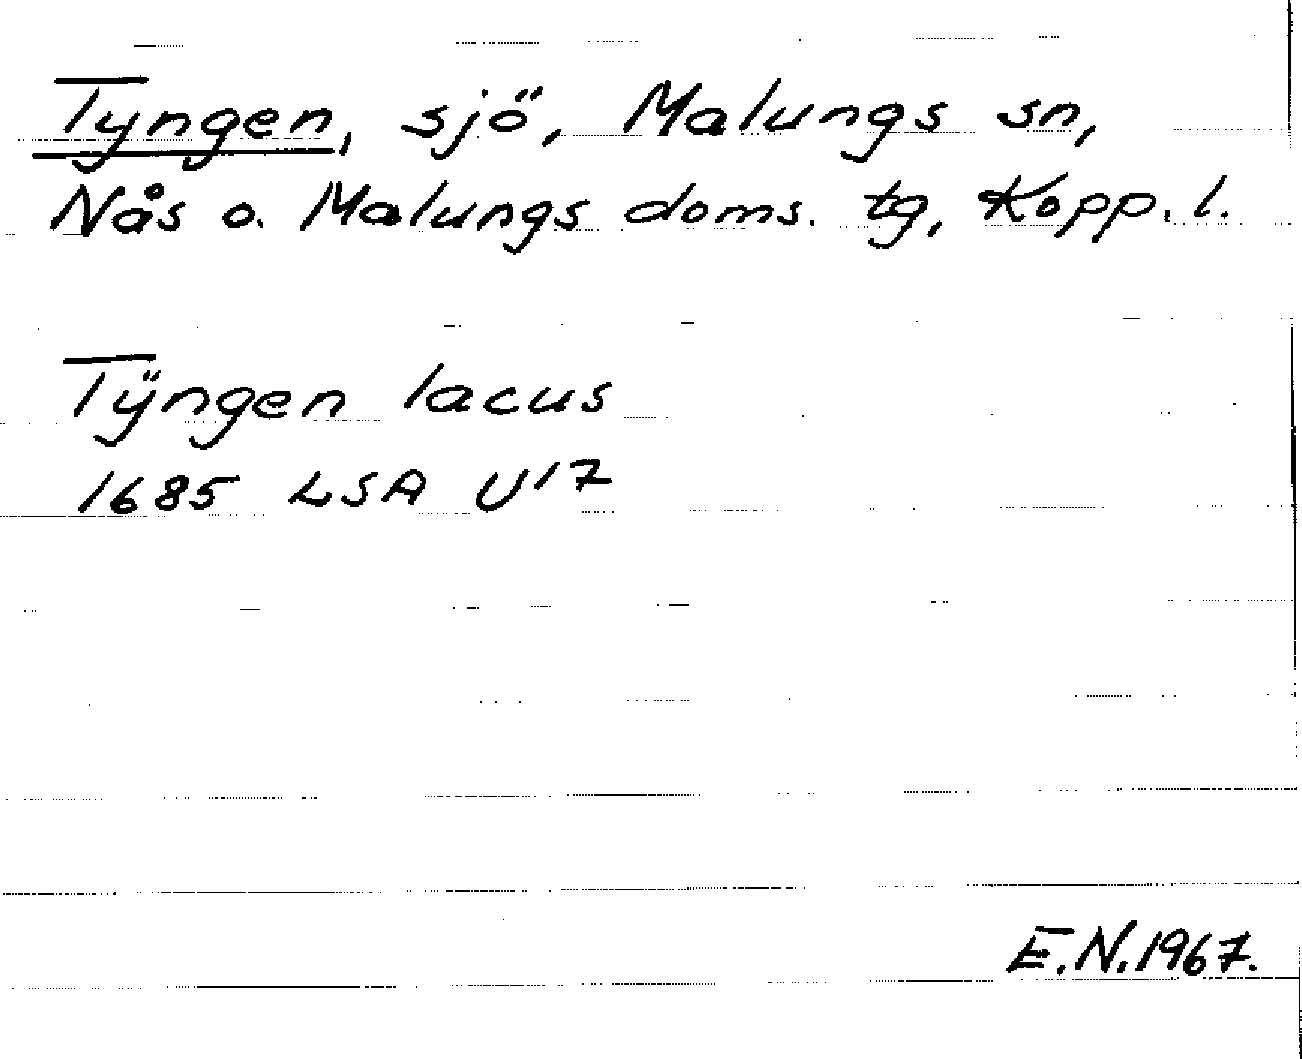 Tyngen, sjö, Malungs sn,
Nås o. Malungs doms. tg, Kopp. l.
Tÿngen lacus
1685 LSA U17
E.N.1967.